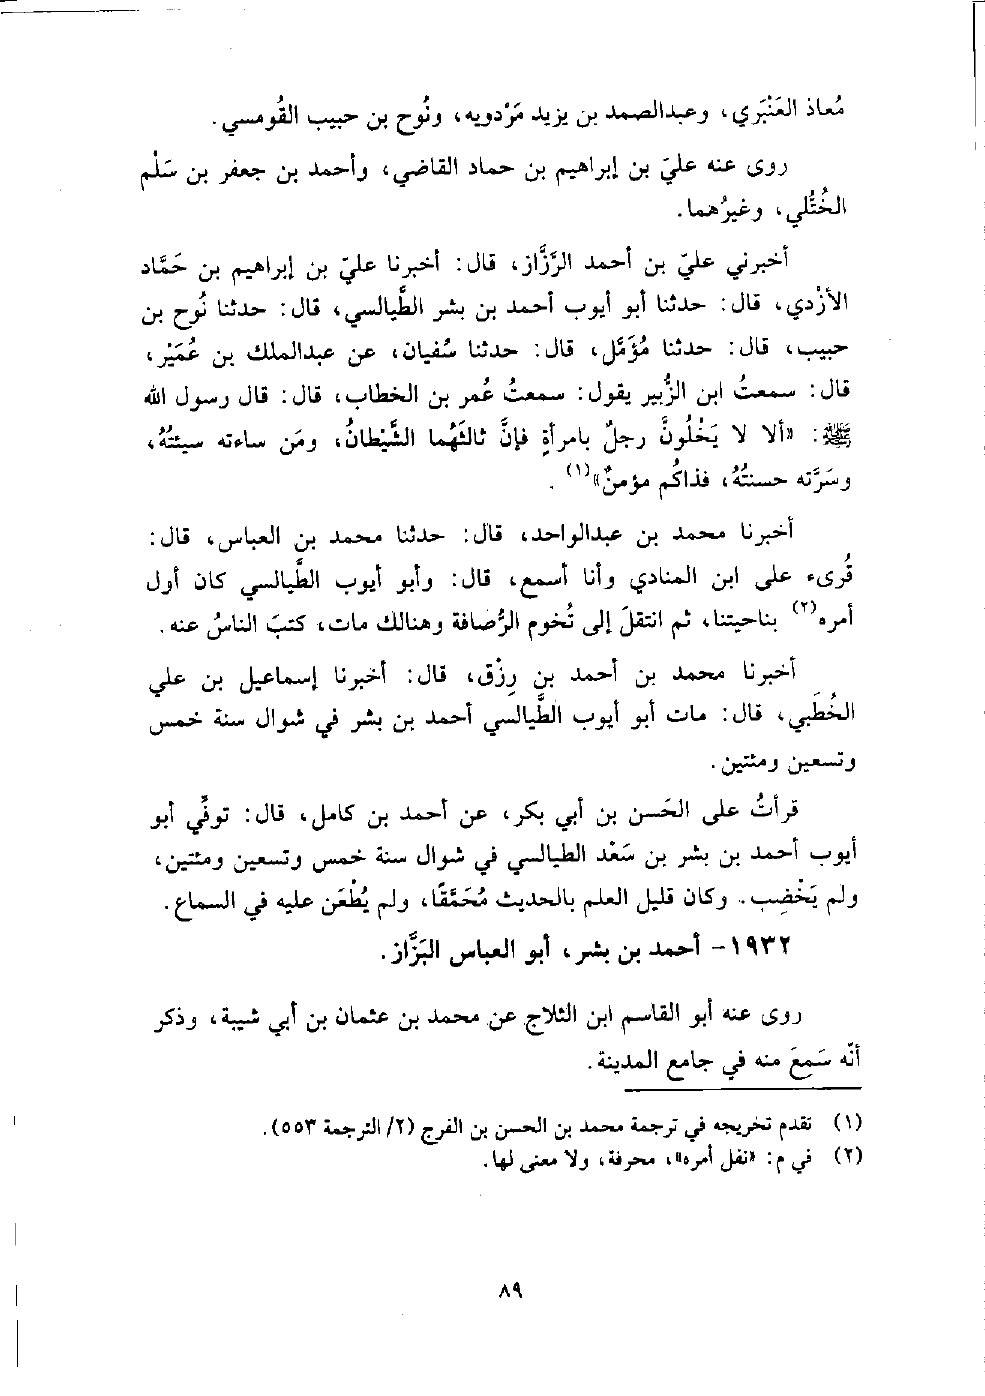 مُعاذ العَنْبَري، وعبدالصمد بن يزيد مَرْدويه، ونُوح بن حبيب القُومسي.
روى عنه عليّ بن إبراهيم بن حماد القاضي، وأحمد بن جعفر بن سَلْم
الخُتُّلي، وغيرُهما.
أخبرني عليّ بن أحمد الرَّزَّاز، قال: أخبرنا عليّ بن إبراهيم بن حَمَّاد
الأزْدي، قال: حدثنا أبو أيوب أحمد بن بشر الطَّيالسي، قال: حدثنا نُوح بن
حبيب، قال: حدثنا مُؤَمَّل، قال: حدثنا سُفيان، عن عبدالملك بن عُمَيْر،
قال: سمعتُ ابن الزُّبير يقول: سمعتُ عُمر بن الخطاب، قال: قال رسول الله
ﷺ: «ألا لا يَخْلُونَّ رجلٌ بامرأةٍ فإنَّ ثالثَهُما الشَّيْطانُ، ومَن ساءته سيئتهُ،
وسَرَّته حسنتُهُ، فذاكُم مؤمنٌ»(١) .
أخبرنا محمد بن عبدالواحد، قال: حدثنا محمد بن العباس، قال:
قُرىء على ابن المنادي وأنا أسمع، قال: وأبو أيوب الطَّيالسي كان أول
أمره(٢) بناحيتنا، ثم انتقلَ إلى تُخوم الرُّصافة وهنالك مات، كتبَ الناسُ عنه.
أخبرنا محمد بن أحمد بن رِزْق، قال: أخبرنا إسماعيل بن علي
الخُطَبي، قال: مات أبو أيوب الطَّيالسي أحمد بن بشر في شوال سنة خمس
وتسعين ومئتين.
قرأتُ على الحَسن بن أبي بكر، عن أحمد بن كامل، قال: توفِّي أبو
أيوب أحمد بن بشر بن سَعْد الطيالسي في شوال سنة خمس وتسعين ومئتين،
ولم يَخْضِب. وكان قليل العلم بالحديث مُحَمَّقًا، ولم يُطْعَن عليه في السماع.
١٩٣٢- أحمد بن بشر، أبو العباس البَزَّاز.
روى عنه أبو القاسم ابن الثلاج عن محمد بن عثمان بن أبي شيبة، وذكر
أنّه سَمِعَ منه في جامع المدينة.
(١) تقدم تخريجه في ترجمة محمد بن الحسن بن الفرج (٢/ الترجمة ٥٥٣).
(٢) في م: «نفل أمره»، محرفة، ولا معنى لها.
٨٩